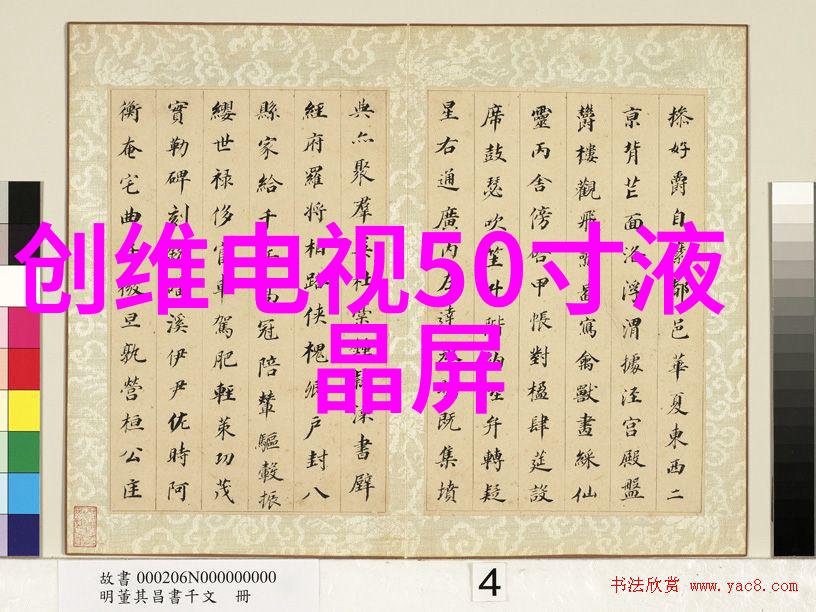 创维电视50寸液
晶屏
摻好爵自縻都邑華夏東西二
京背芒面洛浮渭據涇宮殿盤
欝樓觀飛驚圖寫禽獸畫綵仙
靈丙舍傍啓甲帳對楹肆筵設
席鼓瑟吹笙升階納陛弁轉疑
星右通廣內左達承既集墳
典亦聚羣英杜稾鍾隸漆書壁
經府羅將相路俠槐卿戶封八
縣家給千兵高冠陪輦驅轂振
纓世祿侈富車駕肥輕策功茂
實勒碑刻銘磻溪伊尹佐時阿
衡奄宅曲阜微旦孰營桓公匡
故書 000206N000000000
明董其昌書千文 冊
4
书法欣赏 www.yac8.com